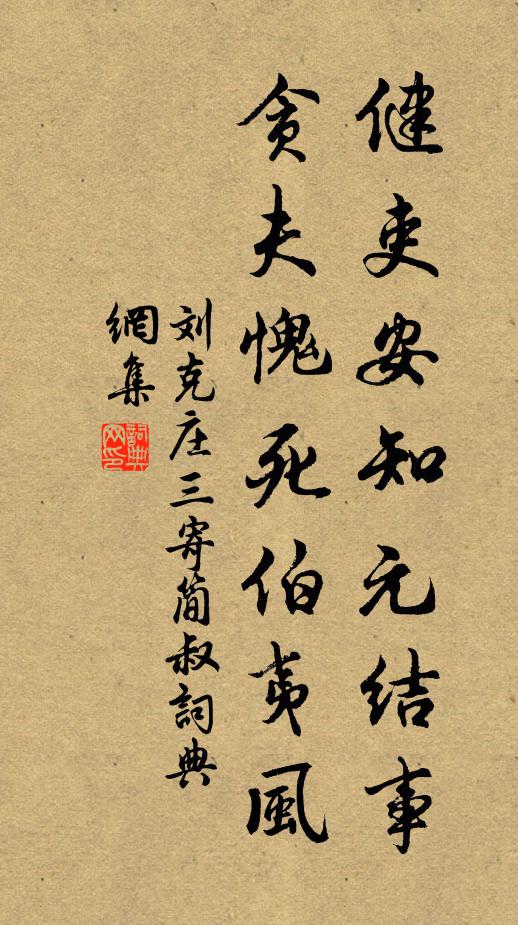 健吏安知元结事
贪夫愧死伯夷風
刘克庄三寄简叔詞典
網集
詞典網印